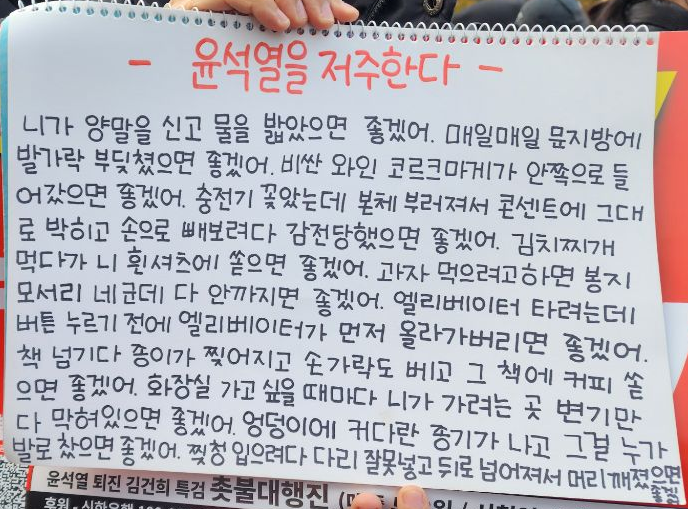 - 윤석열을 저주한다 -
니가 양말을 신고 물을 밟았으면 좋겠어. 매일매일 문지방에
발가락 부딪쳤으면 좋겠어. 비싼 와인 코르크마게가 안쪽으로 들
어갔으면 좋겠어. 충전기 꽂았는데 본체 부러져서 콘센트에 그대
로 박히고 손으로 빼보려다 감전당했으면 좋겠어. 김치찌개
먹다가 니 흰셔츠에 쏟으면 좋겠어. 과자 먹으려고하면 봉지
모서리 네군데 다 안까지면 좋겠어. 엘리베이터 타려는데
버튼 누르기 전에 엘리베이터가 먼저 올라가버리면 좋겠어.
책 넘기다 종이가 찢어지고 손가락도 베고 그 책에 커피 쏟
으면 좋겠어. 화장실 가고 싶을 때마다 니가 가려는 곳 변기만
다 막혀있으면 좋겠어. 엉덩이에 커다란 종기가 나고 그걸 누가
발로 찼으면 좋겠어. 찢청 입으려다 다리 잘못넣고 뒤로 넘어져서 머리 깨졌으면
좋겠
윤석열 퇴진 김건희 특검 촛불대행진
후원 - 신한은행